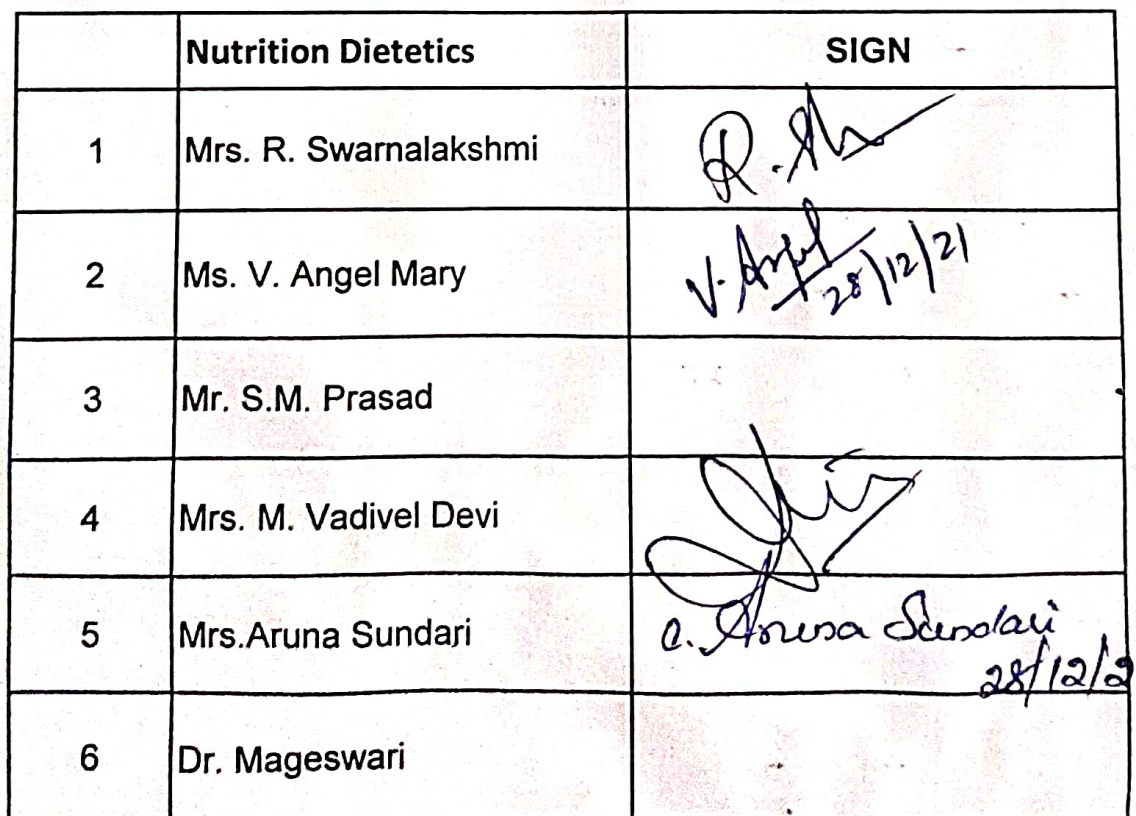 Nutrition Dietetics SIGN
1 Mrs. R. Swarnalakshmi R.
2 Ms. V. Angel Mary V. Angel 28/12/21
3 Mr. S.M. Prasad
4 Mrs. M. Vadivel Devi
5 Mrs.Aruna Sundari a. Aruna Sundari
28/12/2
6 Dr. Mageswari